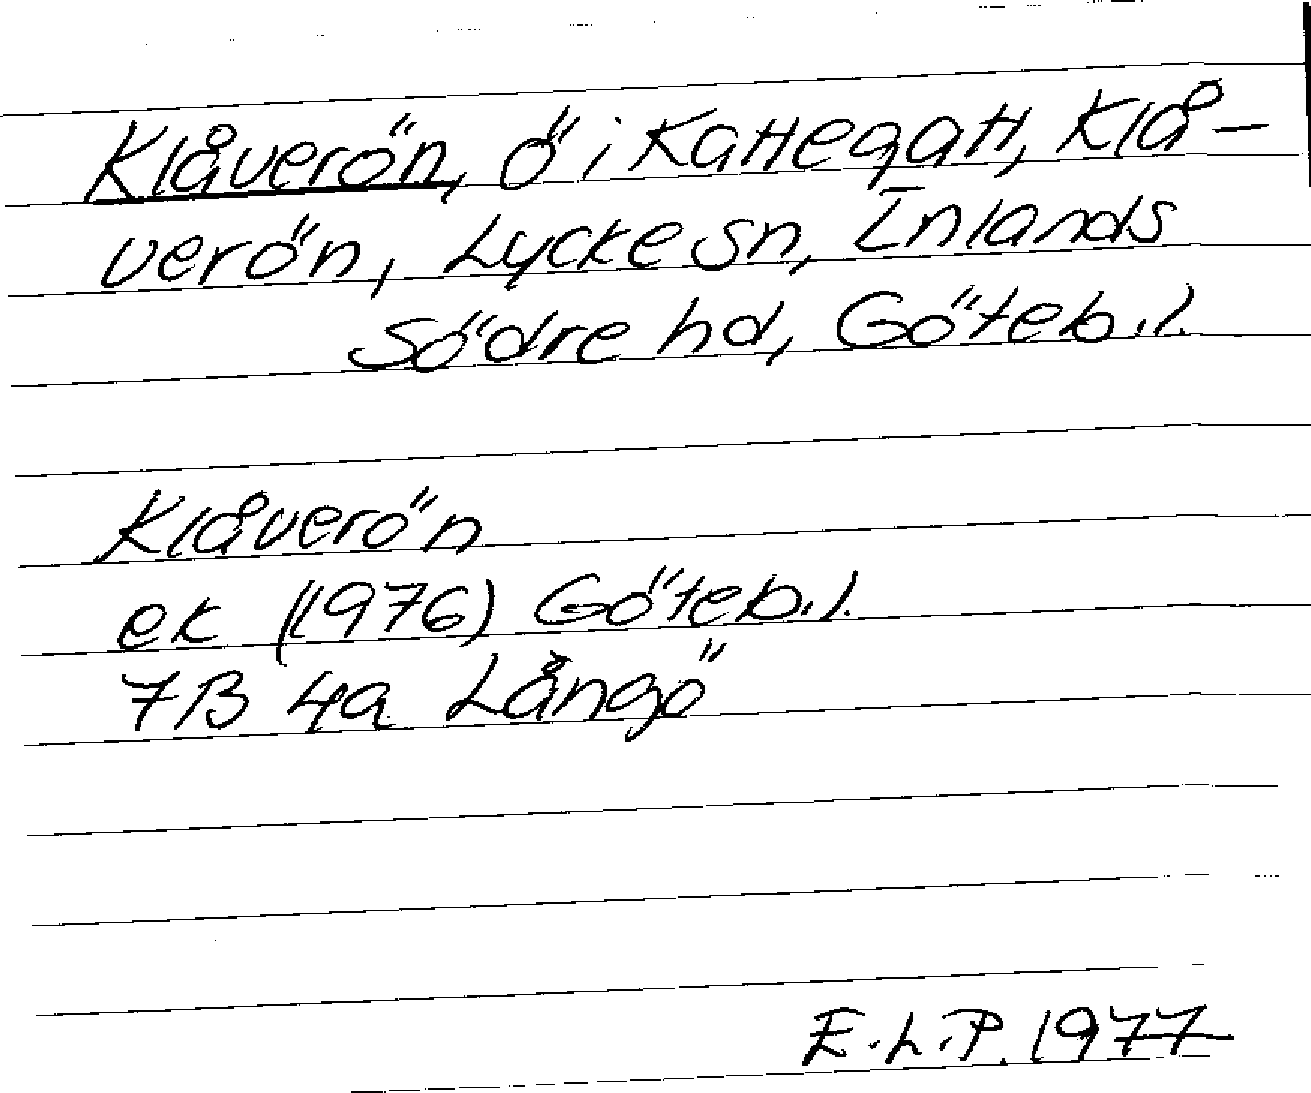 Klåverön, ö i Kattegatt, Klå-
verön, Lycke sn, Inlands
Södre hd, Göteb.l.
Klåverön
ek (1976) Göteb.l.
7B 4a Långö
E.L.P. 1977